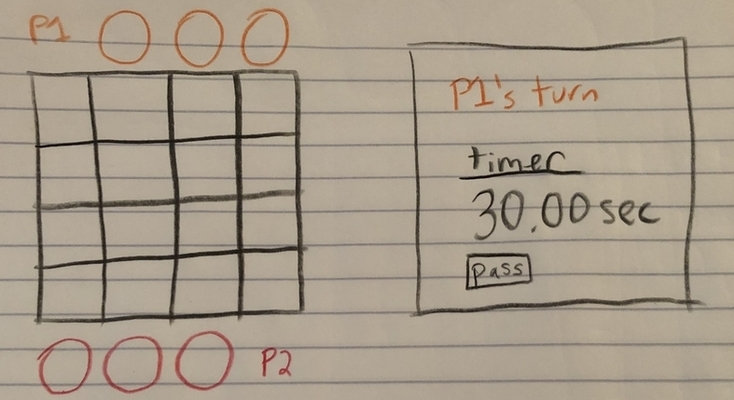 P1
P1's turn
timer
30.00 sec
pass
P2